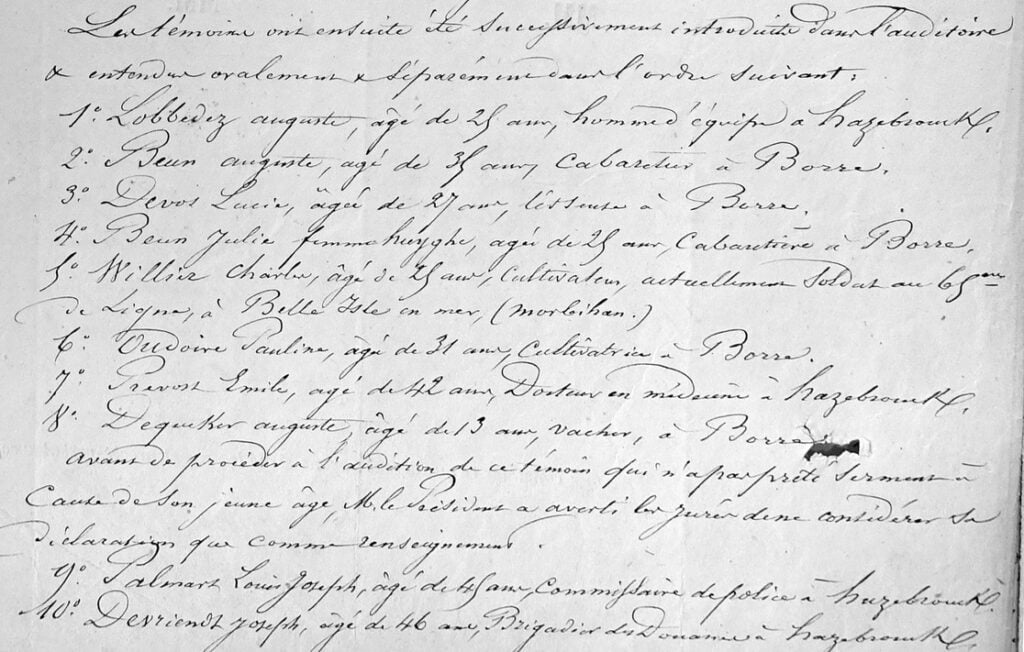 Les témoins ont ensuite été successivement introduits dans l'auditoire
& entendus oralement & séparément dans l'ordre suivant:
1° Lobbedez auguste, âgé de 25 ans, homme d'équipe à hazebrouck.
2° Beun auguste, agé de 35 ans, Cabaretier à Borre.
3° Devos Lucie, âgée de 27 ans, lisseuse à Borre.
4° Beun Julie femme huyghe, agée de 25 ans, Cabaretière à Borre.
5° Willier Charles, âgé de 25 ans, Cultivateur, actuellement Soldat au 65eme
de Ligne, à Belle Isle en mer, (morbihan.)
6° Oudoire Pauline, âgée de 31 ans, Cultivatrice à Borre.
7° Prevost Emile, agé de 42 ans, Docteur en médecine à hazebrouck.
8° Dequeker auguste, âgé de 13 ans, vacher, à Borre.
avant de procéder à l'audition de ce témoin qui n'a pas prêté serment à
Cause de son jeune âge, M. le Président a averti les jurés de ne considérer sa
déclaration que comme renseignement.
9° Palmart Louis Joseph, âgé de 45 ans, Commissaire de police à hazebrouck.
10° Devriendt Joseph, âgé de 46 ans, Brigadier des Douanes à hazebrouck.